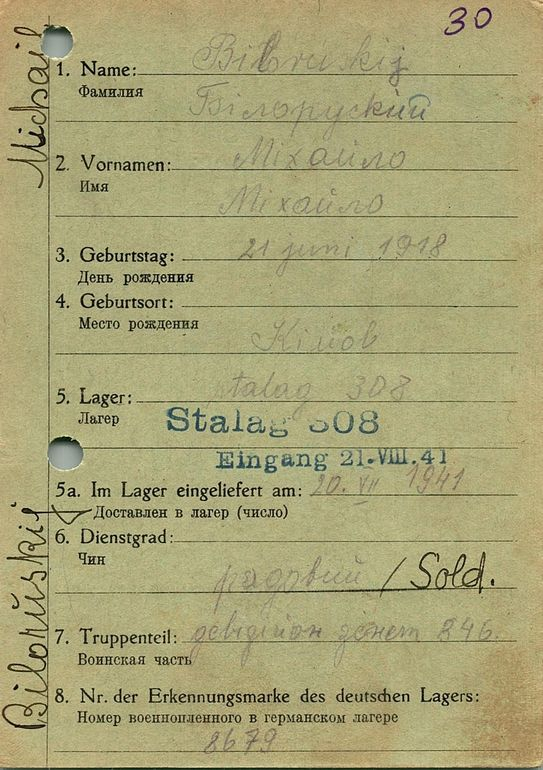 30
Michail
Biloruskij
1. Name: Biloruskij
Фамилия
Білоруский
2. Vornamen: Міхайло
Имя
Міхайло
3. Geburtstag: 21 juni 1918
День рождения
4. Geburtsort:
Место рождения
5. Lager: stalag 308
Лагер
Stalag 308
Eingang 21.VIII.41
5a. Im Lager eingeliefert am: 20. VII 1941
Доставлен в лагер (число)
6. Dienstgrad:
Чин
радовий / Sold.
7. Truppenteil: 246.
Воинская часть
8. Nr. der Erkennungsmarke des deutschen Lagers:
Номер военнопленного в германском лагере
8679